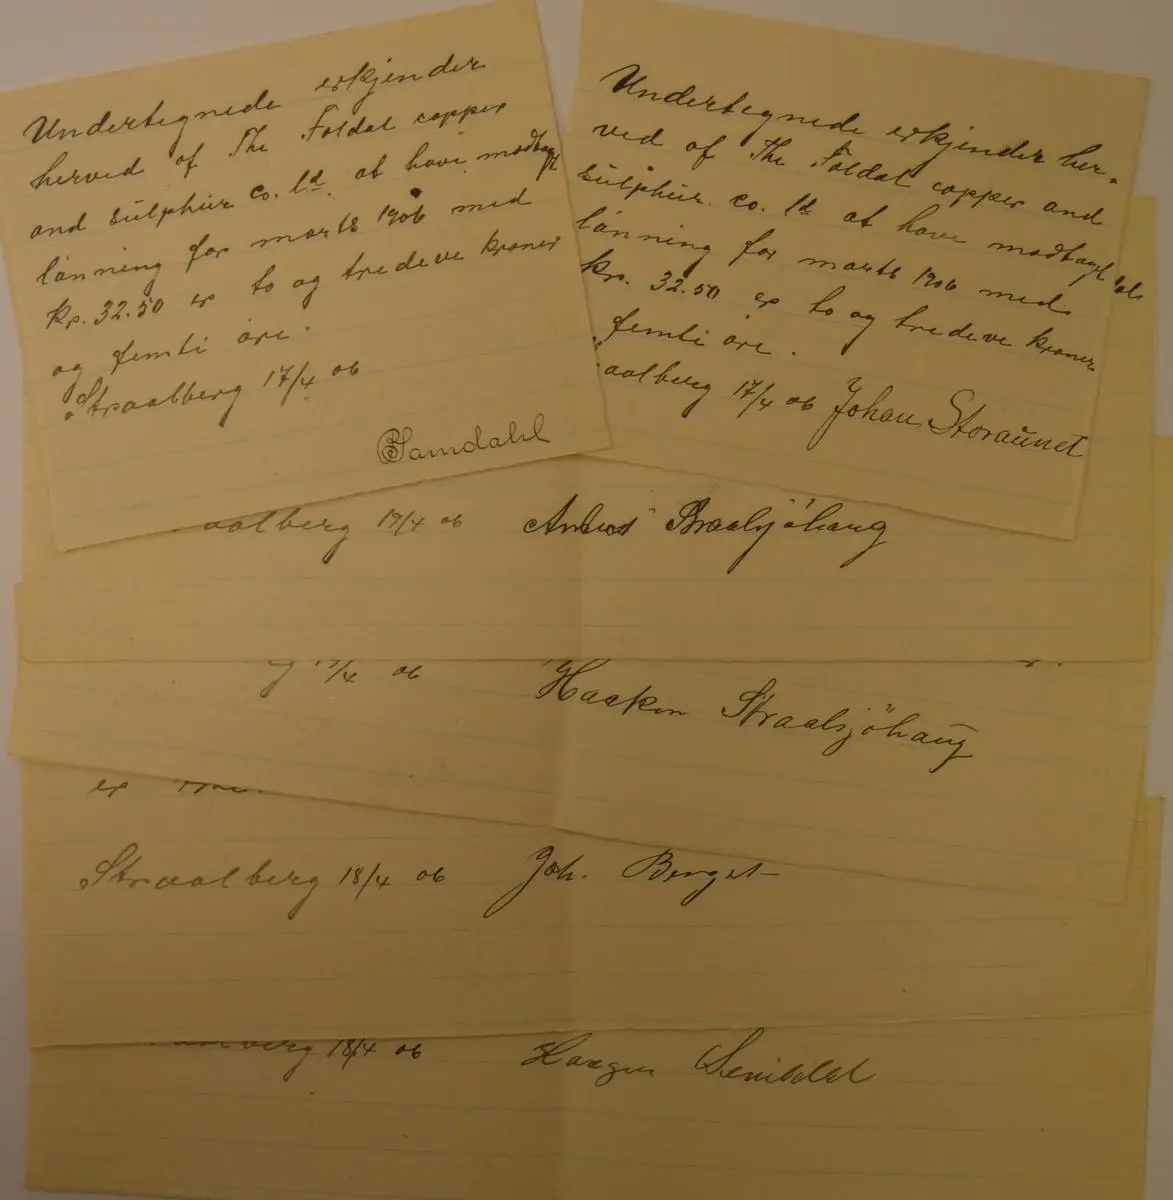 Undertegnede erkjender
herved of The Foldal copper
and sulphur co. ld. at have modtagt
lönning for marts 1906 med
kr. 32.50 er to og tredeve kroner
og femti öre.
Straalberg 17/4 06
Samdahl
Undertegnede erkjender her-
ved of The Foldal copper and
sulphur co. ld at have modtagt
lönning for marts 1906 med
kr. 32.50 er to og tredeve kroner
femti öre.
aalberg 17/4 06 Johan Storaunet
aalberg 19/4 06 Straalsjöhaug
g 19/4 06 Haakon Straalsjöhaug
er
Straalberg 18/4 06 Joh. Berget
berg 18/4 06